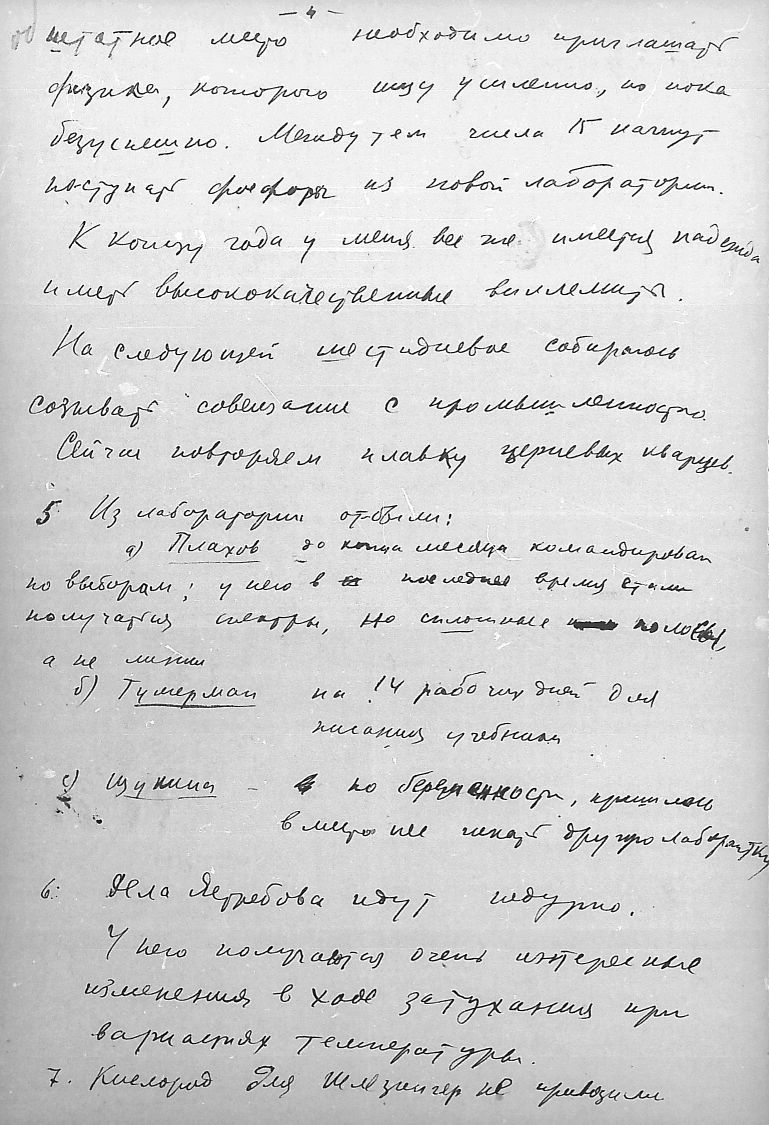 — 4 —
штатное место необходимо приглашать
физика, которого ищу усиленно, но пока
безуспешно. Между тем числа 15 начнут
поступать фосфоры из новой лаборатории.
К концу года у меня все же имеется надежда
иметь высококачественные виллемиты.
На следующей шестидневке собираюсь
созывать совещание с промышленностью.
Сейчас повторяем плавку цериевых кварцев.
5 Из лаборатории отбыли:
а) Плахов до конца месяца командирован
по выборам; у него в последнее время стали
получатся спектры, но сплошные полосы,
а не линии
б) Тумерман на 14 рабочих дней для
писания учебника
с) Щукина – по беременности, пришлось
вместо нее искать другую лаборантку
6. Дела Ястребова идут недурно.
У него получаются очень интересные
изменения в ходе затухания при
вариациях температуры.
7. Кислород для Шлезингер не привозили